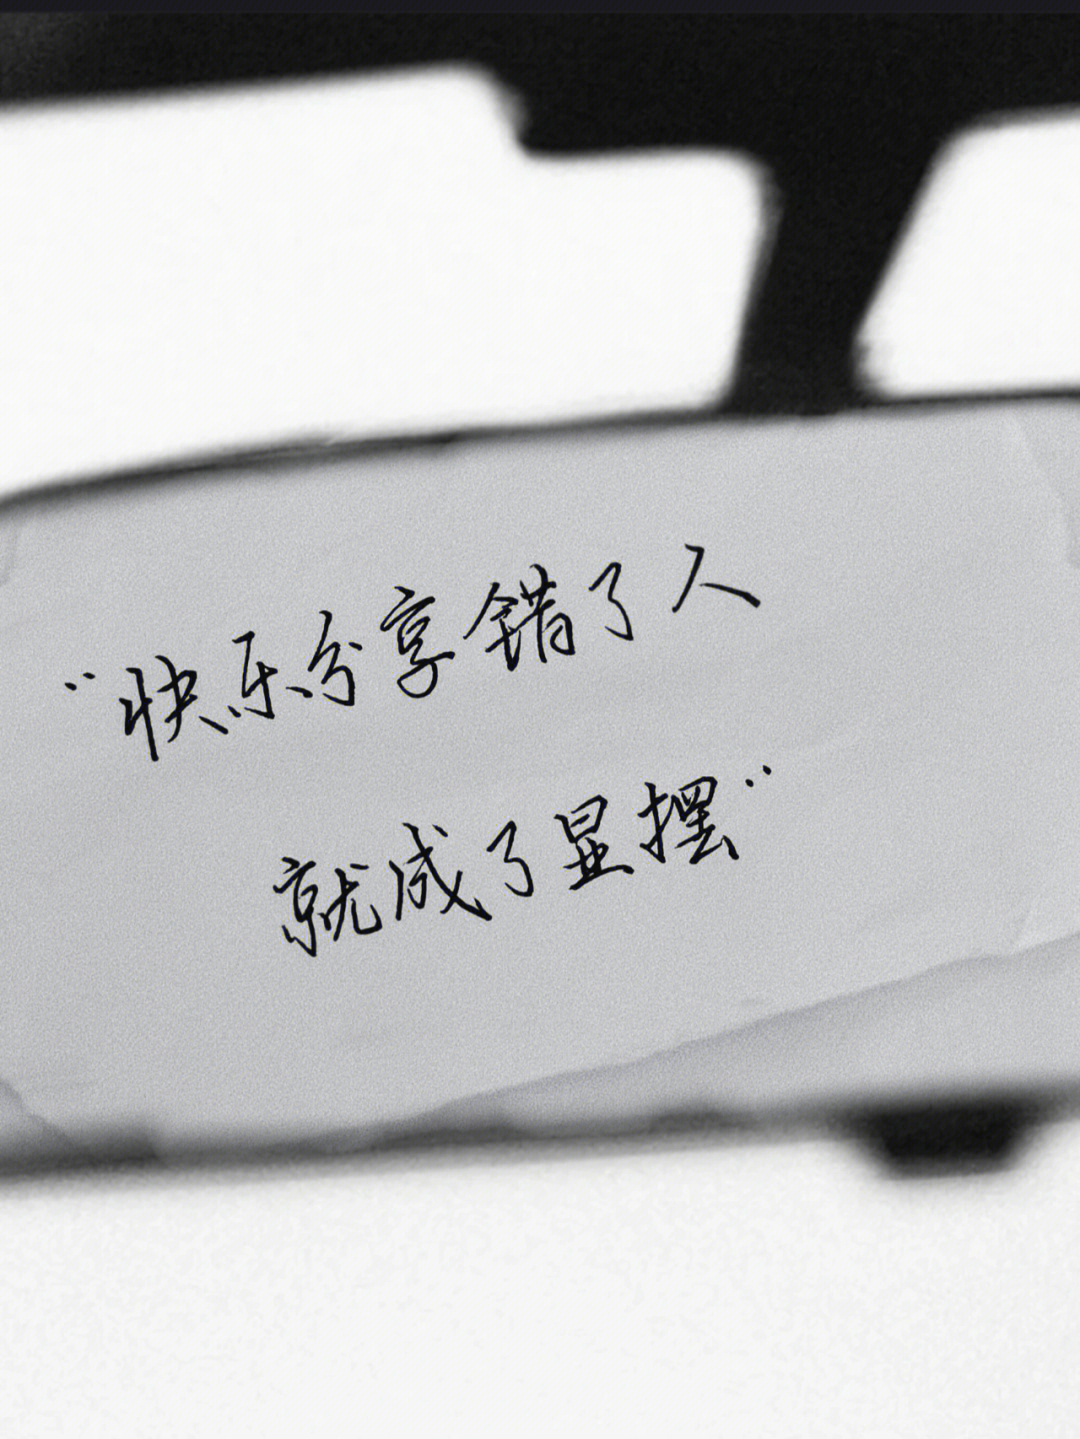 “快乐分享错了人
就成了显摆”